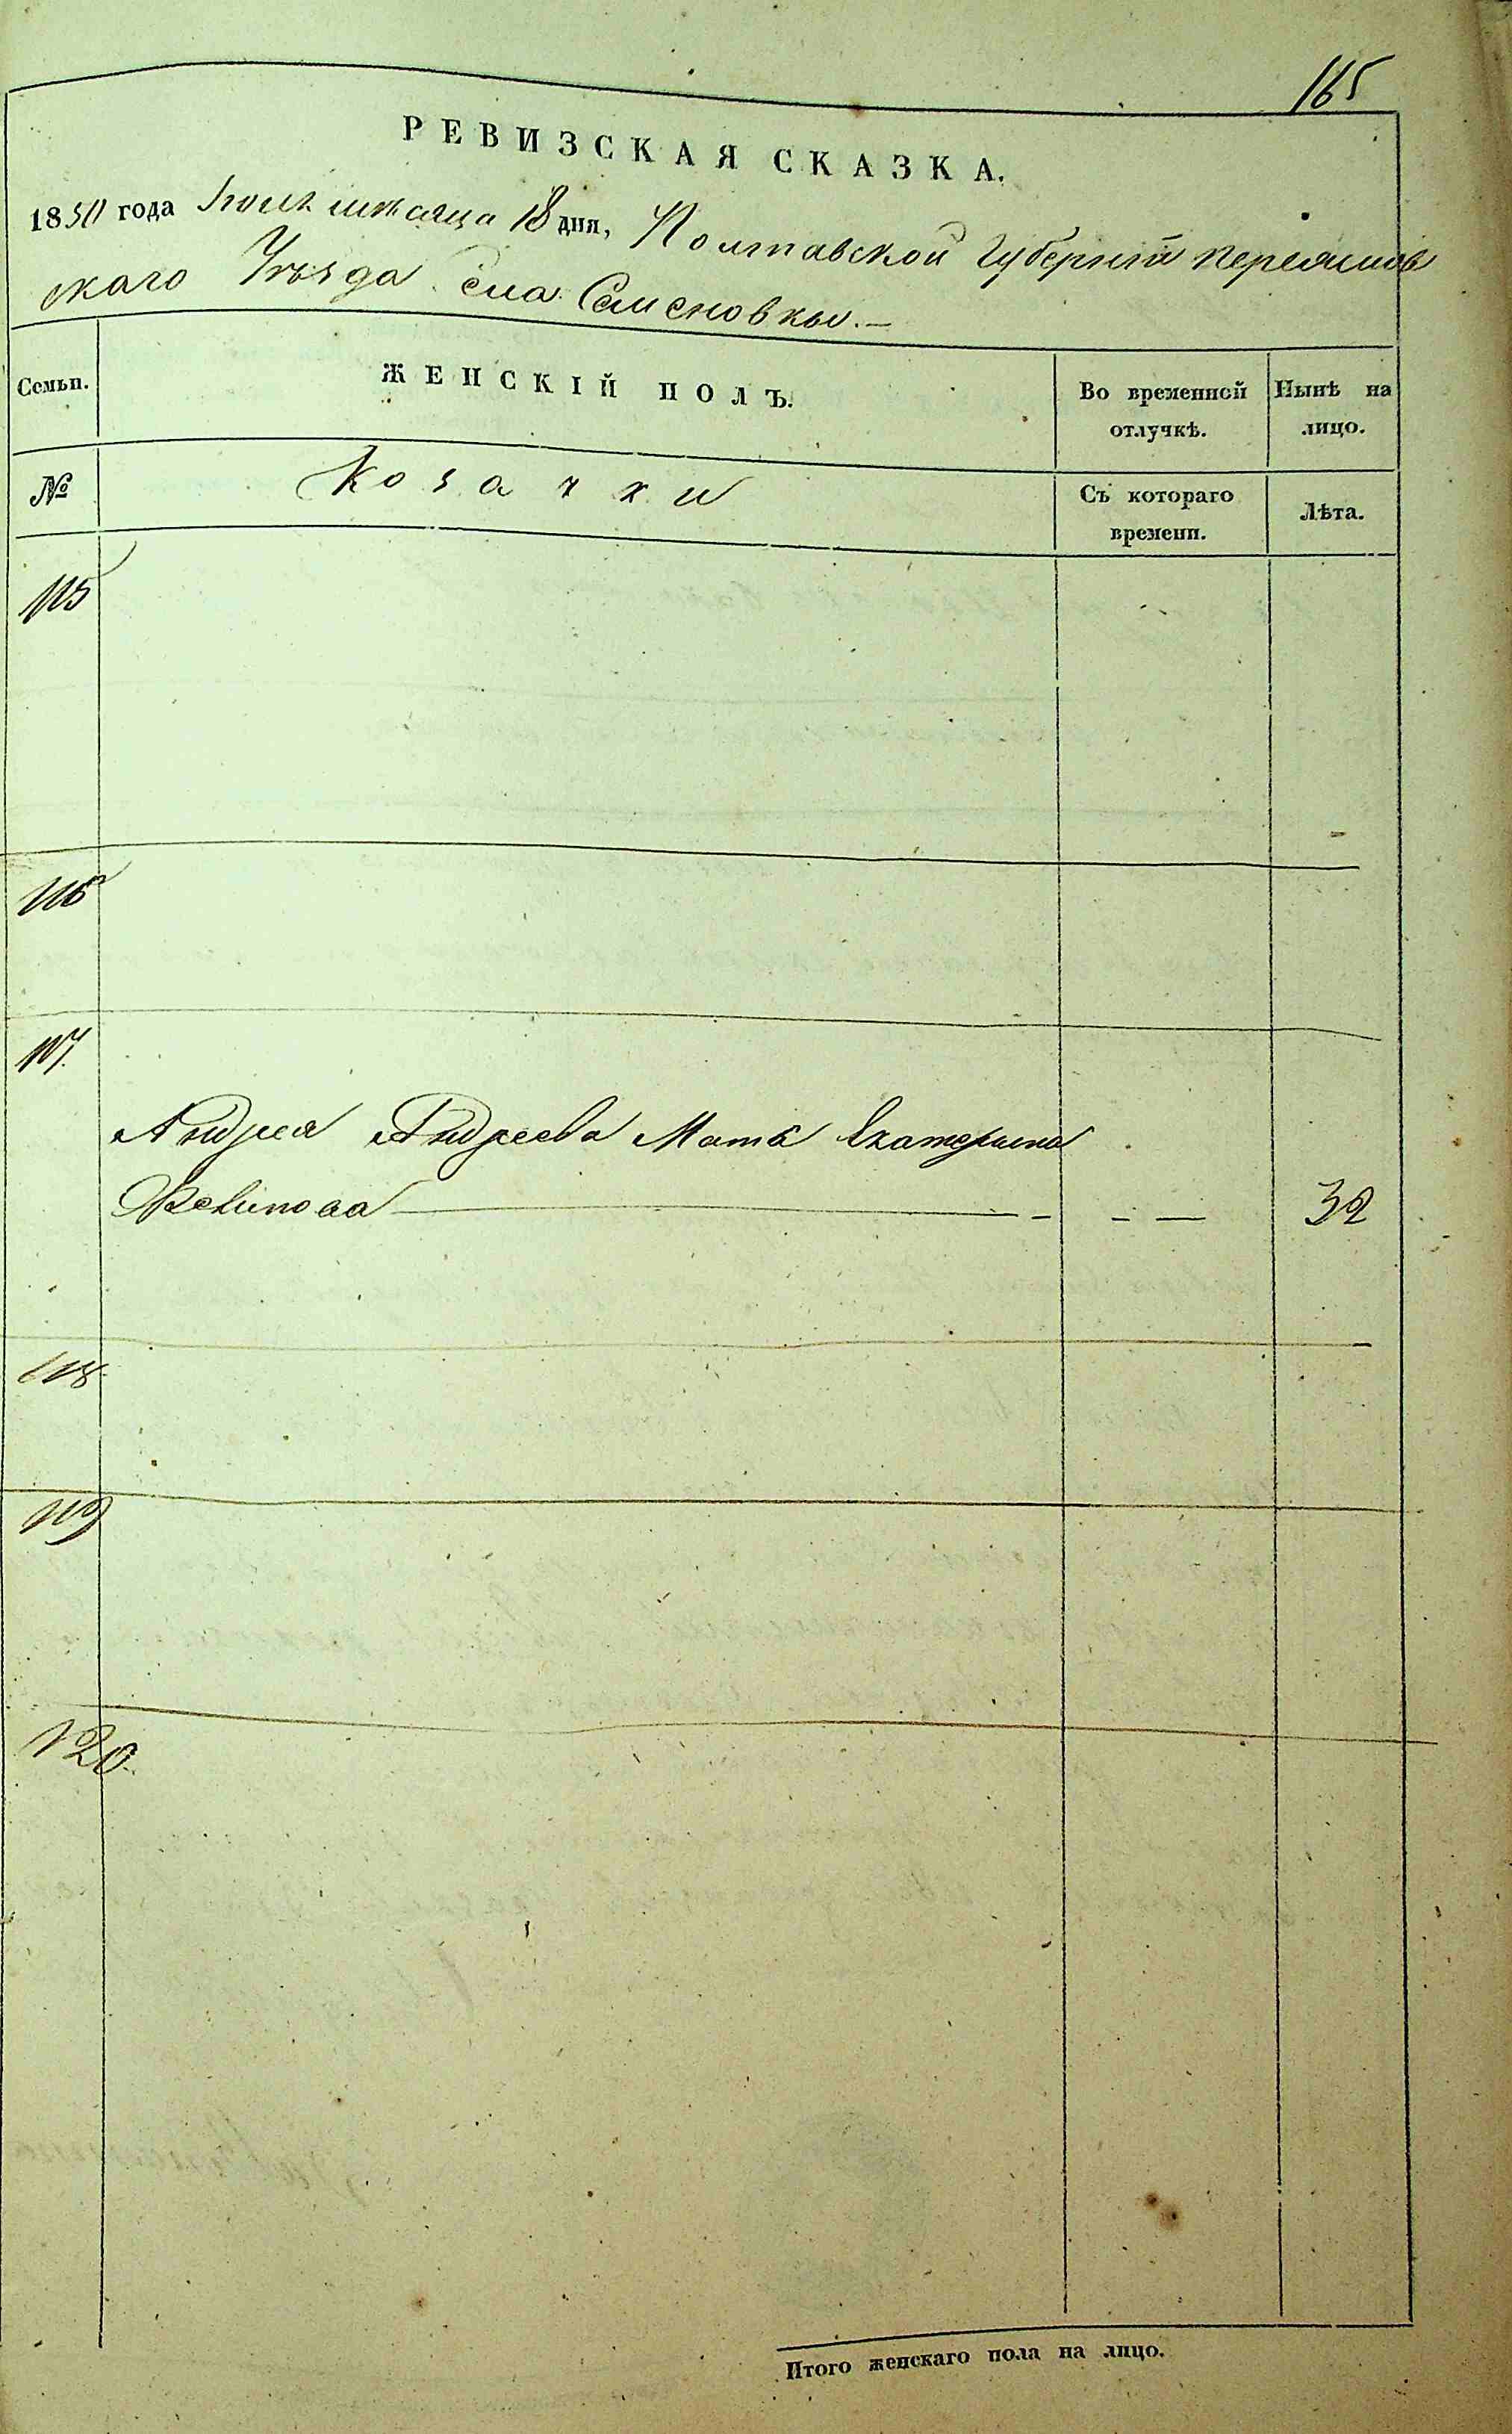 165
РЕВИЗСКАЯ СКАЗКА.
1850 года Іюня мѣсяца 18 дня, Полтавской Губерніи Переяслов
скаго Уѣзда села Семеновки.—
Семьи.
ЖЕНСКІЙ ПОЛЪ.
Во временной отлучкѣ.
Нынѣ на лицо.
№
Козачки
Съ котораго времени.
Лѣта.
115
116
117.
Андрея Андреева Мать Екатерина
— — — 32
118.
119
120.
Итого женскаго пола на лицо.